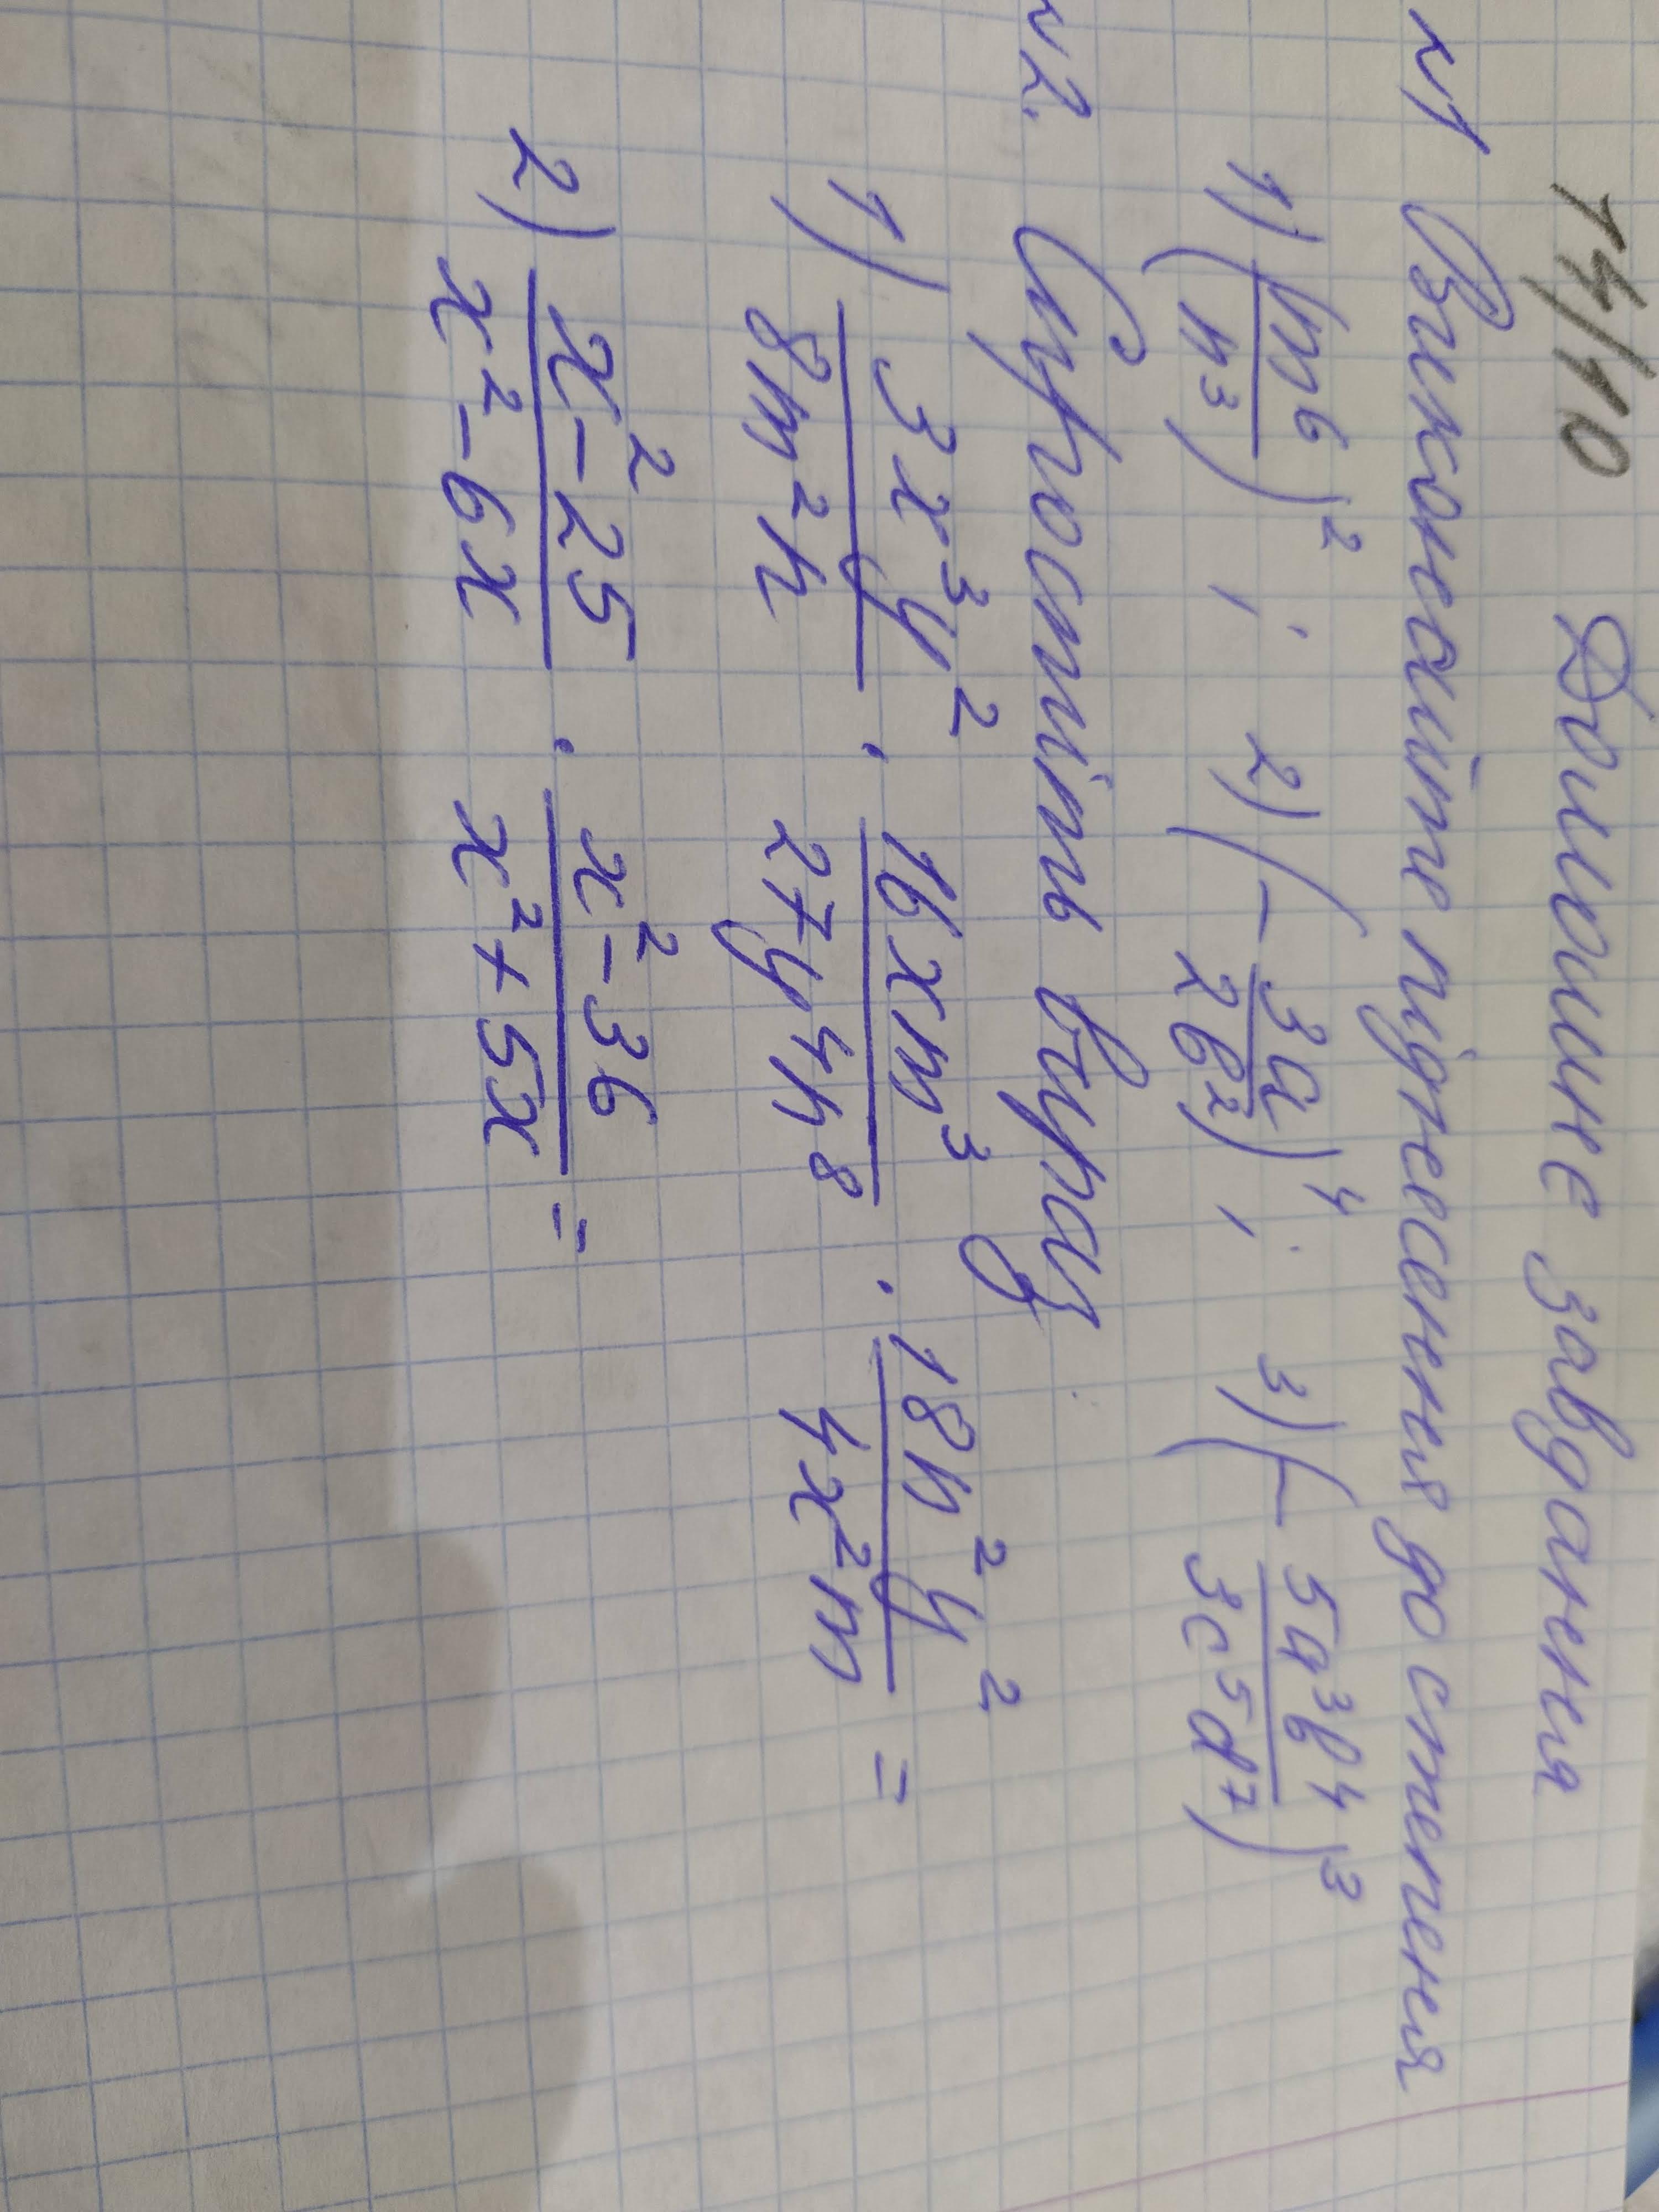 14/10 Домашнє завдання
№1 Виконайте піднесення до степеня
1) (m⁶/n³)²; 2) (-3a/2b²)⁴; 3) (-5a³b⁴/3c⁵d⁷)³
№2. Спростіть вираз
1) 3x³y²/8m²n · 16xm³/27y⁴n⁸ · 18n²y²/4x²m =
2) x²-25/x²-6x · x²-36/x²+5x =